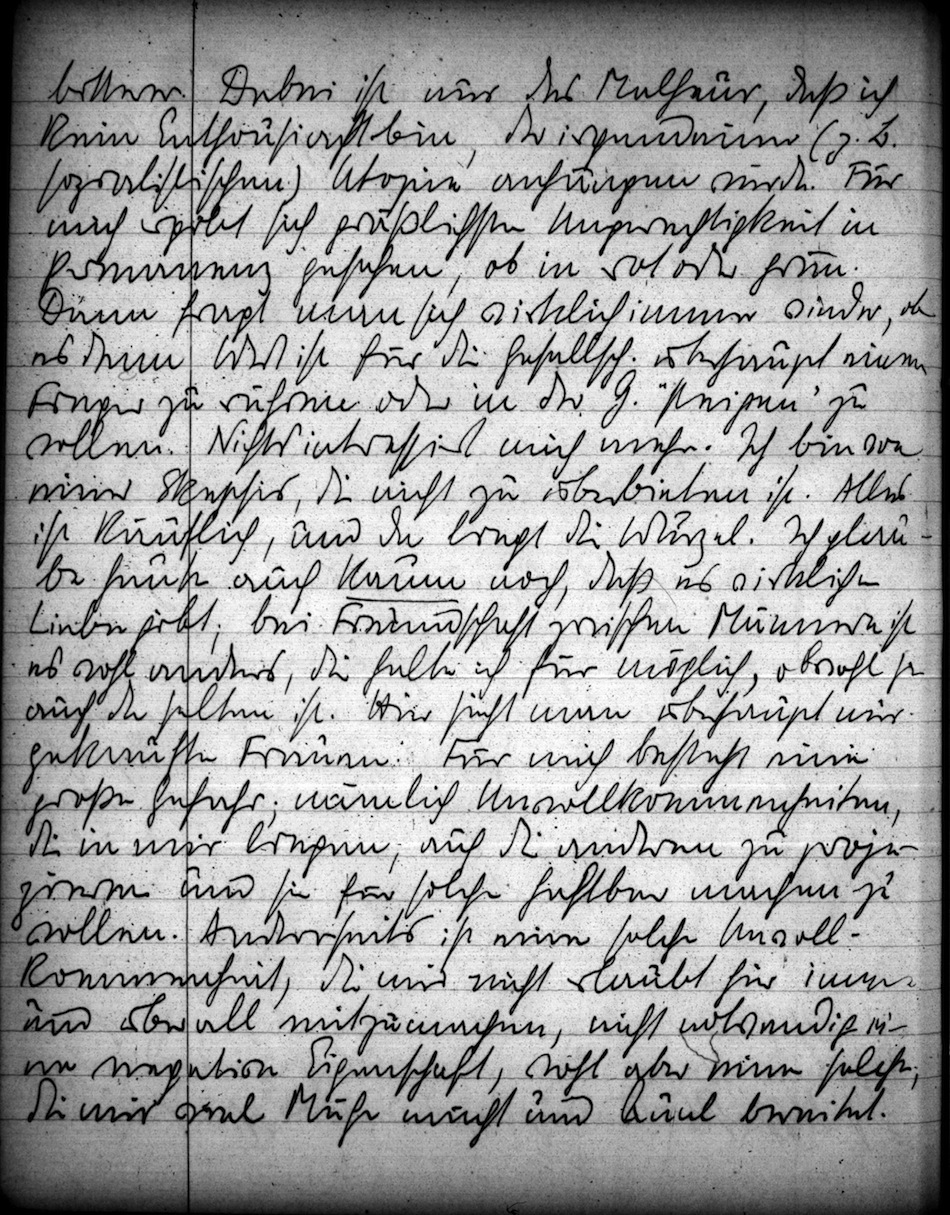 Dabei ist nur das Malheur, daß ich
kein Enthousiast bin, der irgendeiner (z. B.
sozialistischen) Utopie anhängen würde. Für
mich spielt sich gräßlichste Ungerechtigkeit in
Permanenz gesehen, ob in rot oder grün.
Dann fragt man sich wirklich immer wieder, ob
es denn Wert ist für die Gesellsch. überhaupt einen
Finger zu rühren oder in der G. "steigen" zu
wollen. Nichts interessiert mich mehr. Ich bin von
einer Skepsis, die nicht zu überbieten ist. Alles
ist käuflich, und da liegt die Wurzel. Ich glau-
be heute auch kaum noch, daß es wirkliche
Liebe gibt; bei Freundschaft zwischen Männern ist
es wohl anders, die halte ich für möglich, obwohl sie
auch da selten ist. Hier sieht man überhaupt nur
gekaufte Frauen. Für mich besteht eine
große Gefahr; nämlich Unvollkommenheiten,
die in mir liegen, auf die anderen zu proji-
zieren und sie für solche haftbar machen zu
wollen. Andrerseits ist eine solche Unvoll-
kommenheit, die mir nicht erlaubt hier immer
und überall mitzumachen, nicht notwendig ei-
ne negative Eigenschaft, wohl aber eine solche,
die mir viel Mühe macht und Qual bereitet.